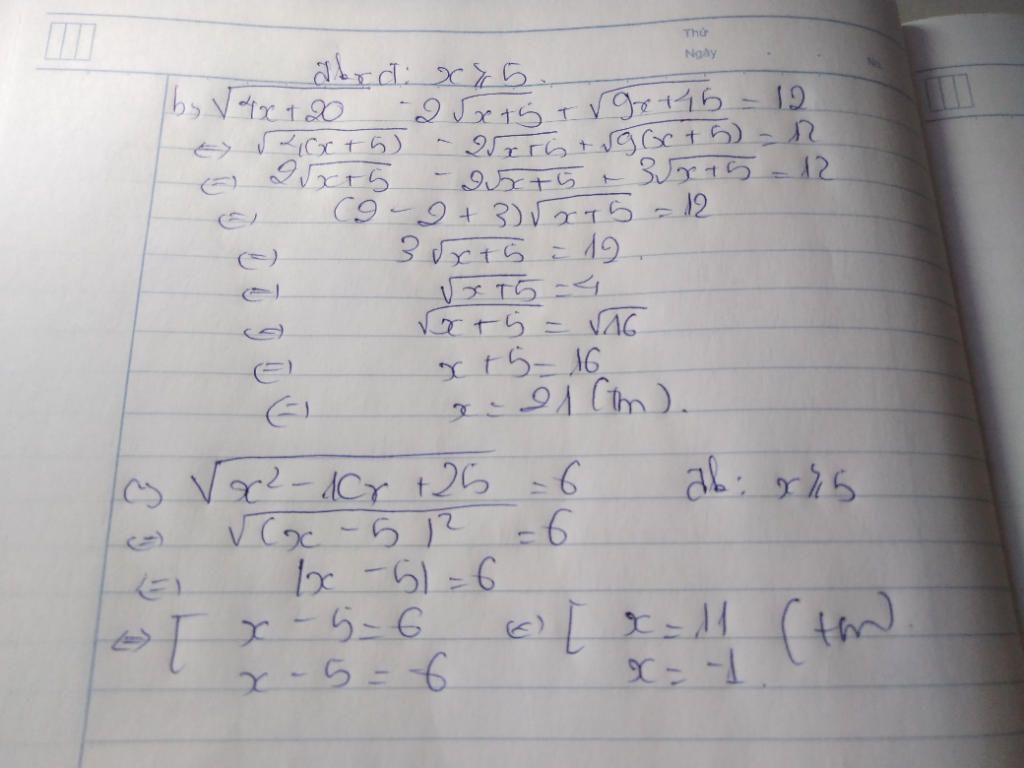 Thứ
Ngày
No.
đkxđ: x ⩾ 5.
b, √(4x + 20) - 2√(x+5) + √(9x + 45) = 12
<=> √(4(x + 5)) - 2√(x+5) + √(9(x + 5)) = 12
<=> 2√(x+5) - 2√(x+5) + 3√(x+5) = 12
<=> (2 - 2 + 3)√(x+5) = 12
<=> 3√(x+5) = 12.
<=> √(x+5) = 4
<=> √(x+5) = √16
<=> x + 5 = 16
<=> x = 21 (tm).
c, √(x² - 10x + 25) = 6 đk: x ⩾ 5
<=> √((x - 5)²) = 6
<=> |x - 5| = 6
<=> [ x - 5 = 6 <=> [ x = 11 (tm).
x - 5 = -6 x = -1.